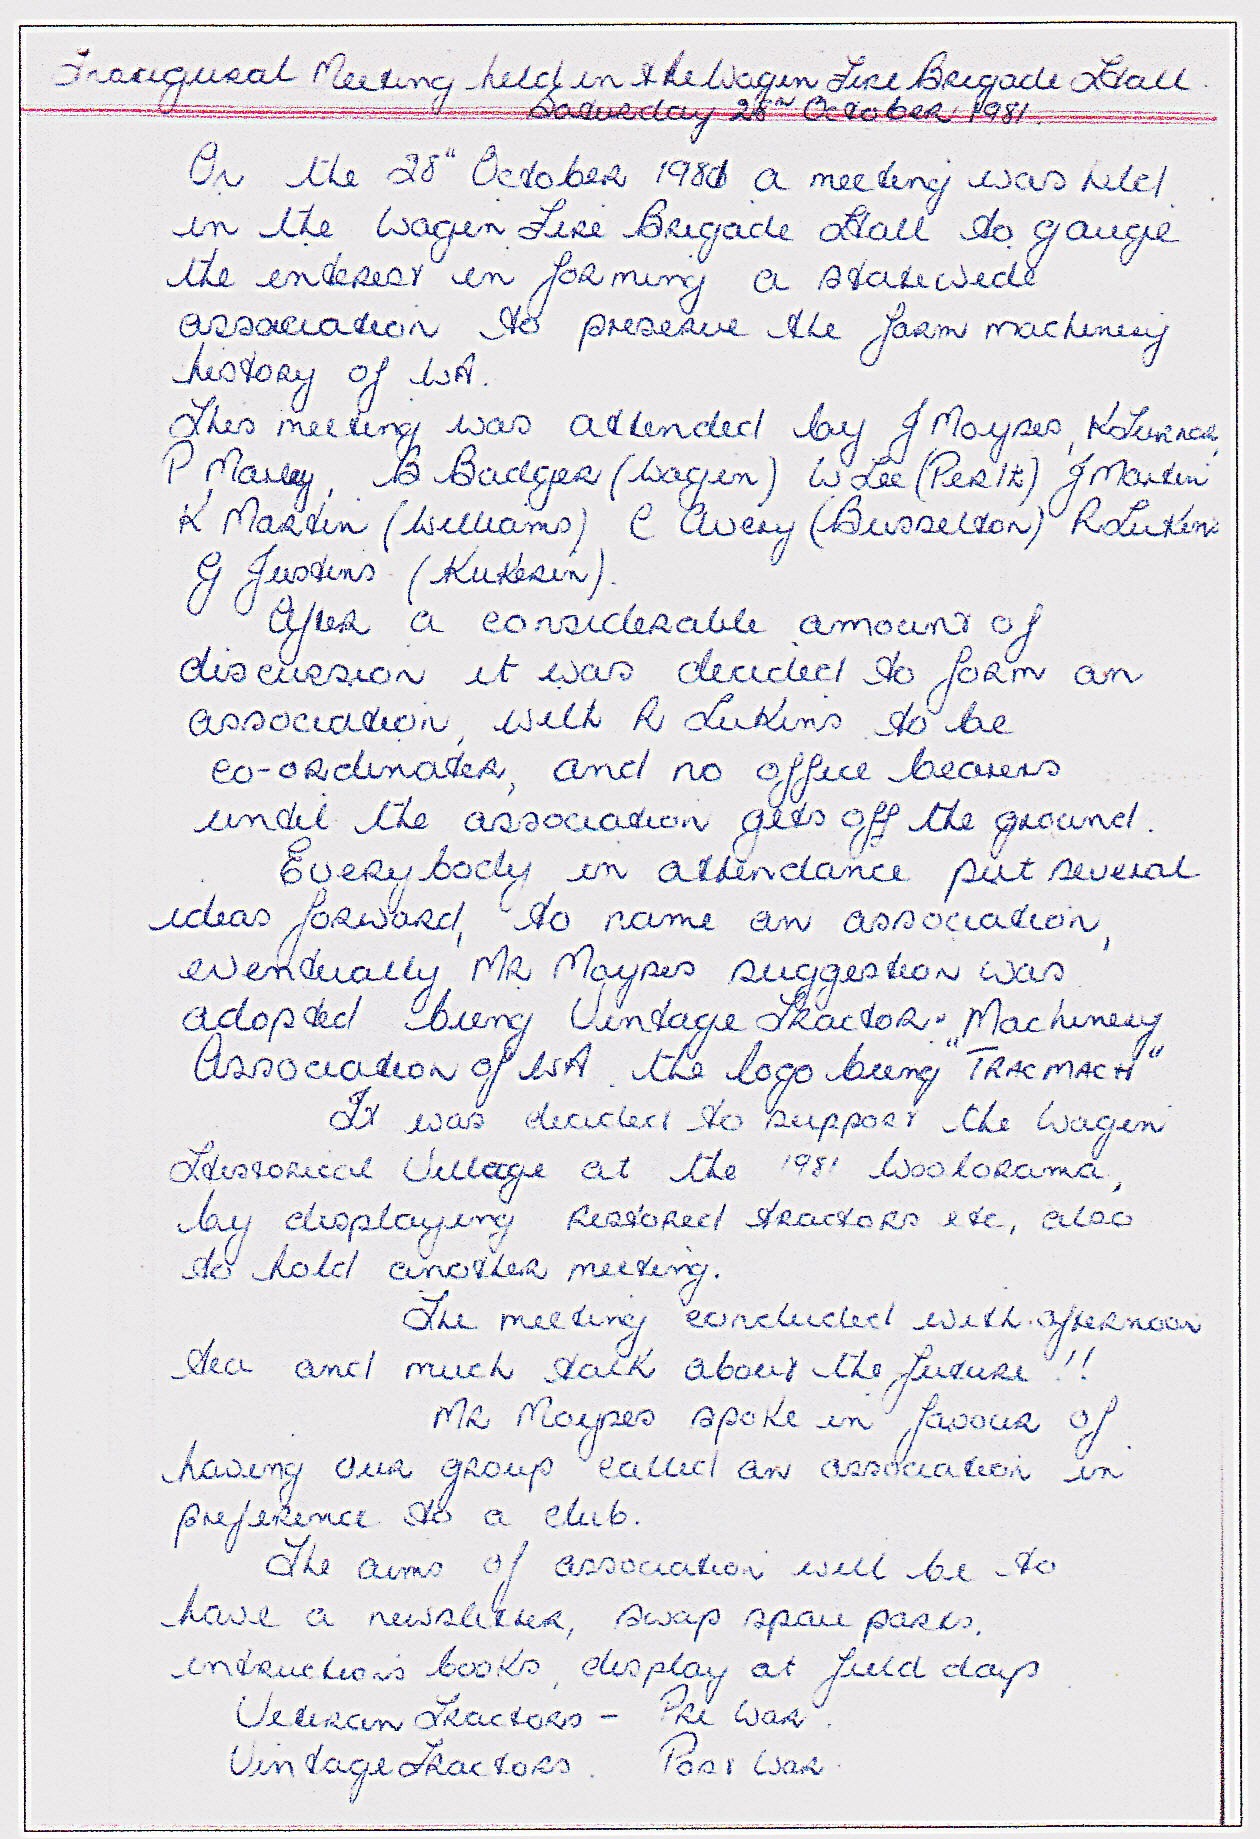 Inaugural Meeting held in the Wagin Fire Brigade Hall.
Saturday 28th October 1981.
On the 28th October 1981 a meeting was held
in the Wagin Fire Brigade Hall to gauge
the interest in forming a statewide
association to preserve the farm machinery
history of WA.
This meeting was attended by J Moyses, K Turner,
P Marley, B Badger (Wagin) W Lee (Perth) J Martin
K Martin (Williams) C Avery (Busselton) R Lukins
G Justins (Kukerin).
After a considerable amount of
discussion it was decided to form an
association, with R Lukins to be
co-ordinater, and no office bearers
until the association gets off the ground.
Everybody in attendance put several
ideas forward, to name an association,
eventually Mr Moyses suggestion was
adopted being Vintage Tractor & Machinery
Association of WA. the logo being "TRACMACH"
It was decided to support the Wagin
Historical Village at the 1981 Woolorama,
by displaying restored tractors etc, also
to hold another meeting.
The meeting concluded with afternoon
tea and much talk about the future!!
Mr Moyses spoke in favour of
having our group called an association in
preference to a club.
The aims of association will be to
have a newsletter, swap spare parts,
intructions books, display at field days
Veteran Tractors - Pre War.
Vintage Tractors. Post War.